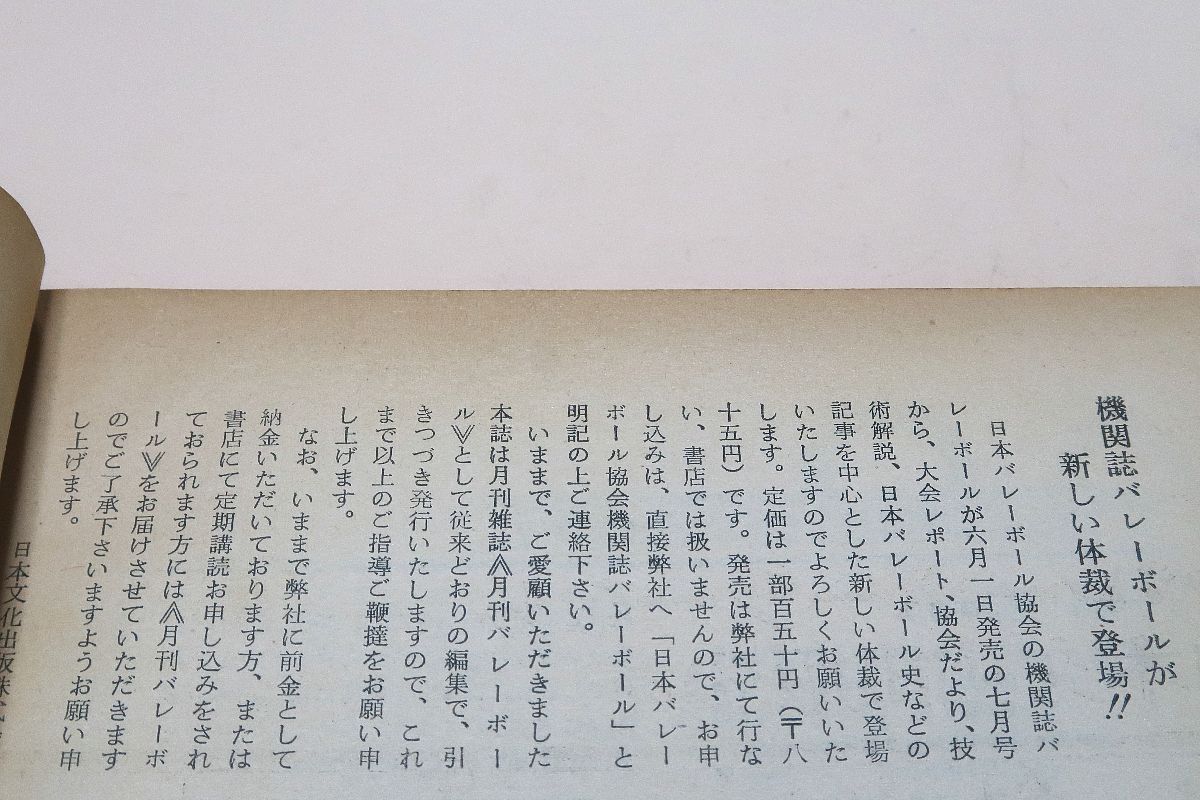 機関誌バレーボールが
新しい体裁で登場!!
日本バレーボール協会の機関誌バ
レーボールが六月一日発売の七月号
から、大会レポート、協会だより、技
術解説、日本バレーボール史などの
記事を中心とした新しい体裁で登場
いたしますのでよろしくお願いいた
します。定価は一部百五十円(〒八
十五円)です。発売は弊社にて行な
い、書店では扱いませんので、お申
し込みは、直接弊社へ「日本バレー
ボール協会機関誌バレーボール」と
明記の上ご連絡下さい。
いままで、ご愛顧いただきました
本誌は月刊雑誌≪月刊バレーボー
ル≫として従来どおりの編集で、引
きつづき発行いたしますので、これ
まで以上のご指導ご鞭撻をお願い申
し上げます。
なお、いままで弊社に前金として
納金いただいております方、または
書店にて定期講読お申し込みをされ
ておられます方には≪月刊バレーボ
ール≫をお届けさせていただきます
のでご了承下さいますようお願い申
し上げます。
日本文化出版株式